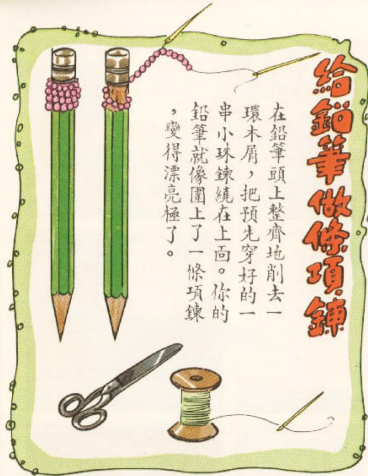 給鉛筆做條項鍊
在鉛筆頭上整齊地削去一
環木屑，把預先穿好的一
串小珠鍊繞在上面。你的
鉛筆就像圍上了一條項鍊
，變得漂亮極了。